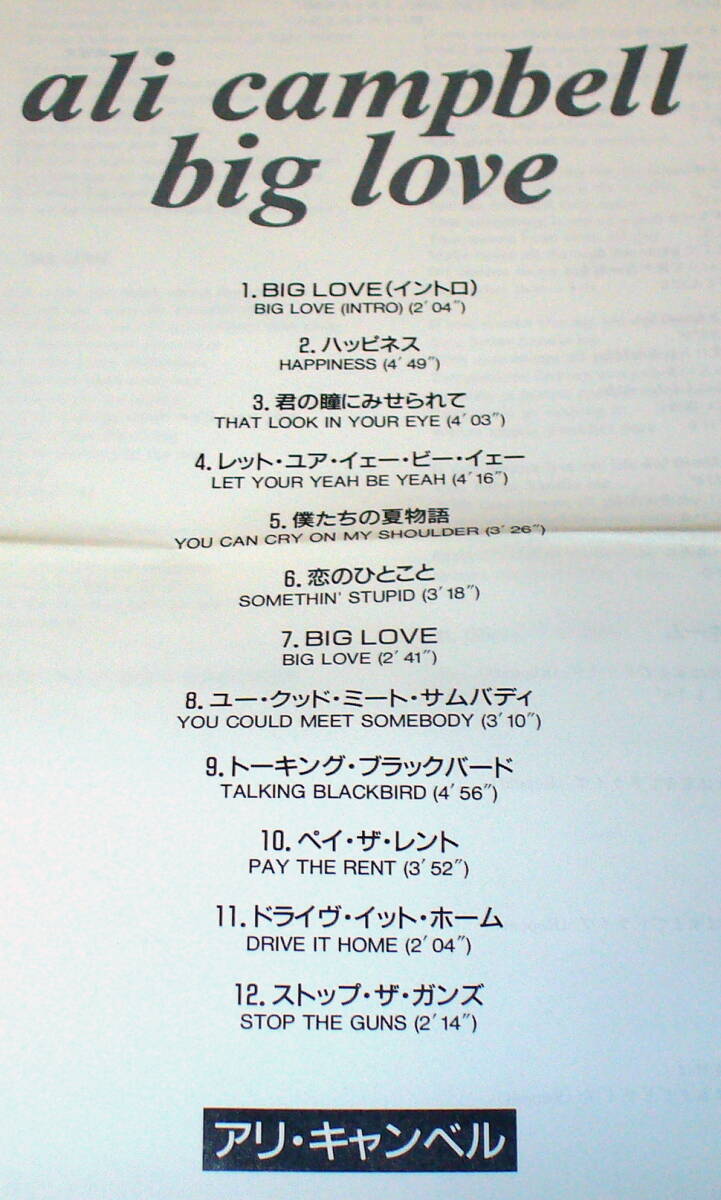 ali campbell
big love
1. BIG LOVE（イントロ）
BIG LOVE (INTRO) (2′04″)
2. ハッピネス
HAPPINESS (4′49″)
3. 君の瞳にみせられて
THAT LOOK IN YOUR EYE (4′03″)
4. レット・ユア・イェー・ビー・イェー
LET YOUR YEAH BE YEAH (4′16″)
5. 僕たちの夏物語
YOU CAN CRY ON MY SHOULDER (3′26″)
6. 恋のひとこと
SOMETHIN' STUPID (3′18″)
7. BIG LOVE
BIG LOVE (2′41″)
8. ユー・クッド・ミート・サムバディ
YOU COULD MEET SOMEBODY (3′10″)
9. トーキング・ブラックバード
TALKING BLACKBIRD (4′56″)
10. ペイ・ザ・レント
PAY THE RENT (3′52″)
11. ドライヴ・イット・ホーム
DRIVE IT HOME (2′04″)
12. ストップ・ザ・ガンズ
STOP THE GUNS (2′14″)
アリ・キャンベル